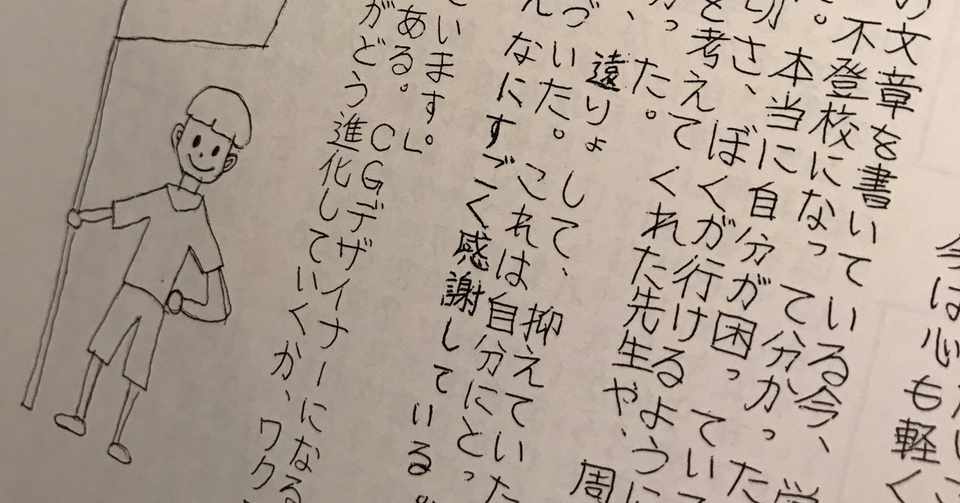 今は心も軽く
の文章を書いている今、
。不登校になって分かった
本当に自分が困ってい
切さ、ぼくが行けるように
を考えてくれた先生や、周
った。
、遠りょして、抑えていた
づいた。これは自分にとっ
んなにすごく感謝している。
ています。」
ある。CGデザイナーになる
がどう進化していくか、ワク